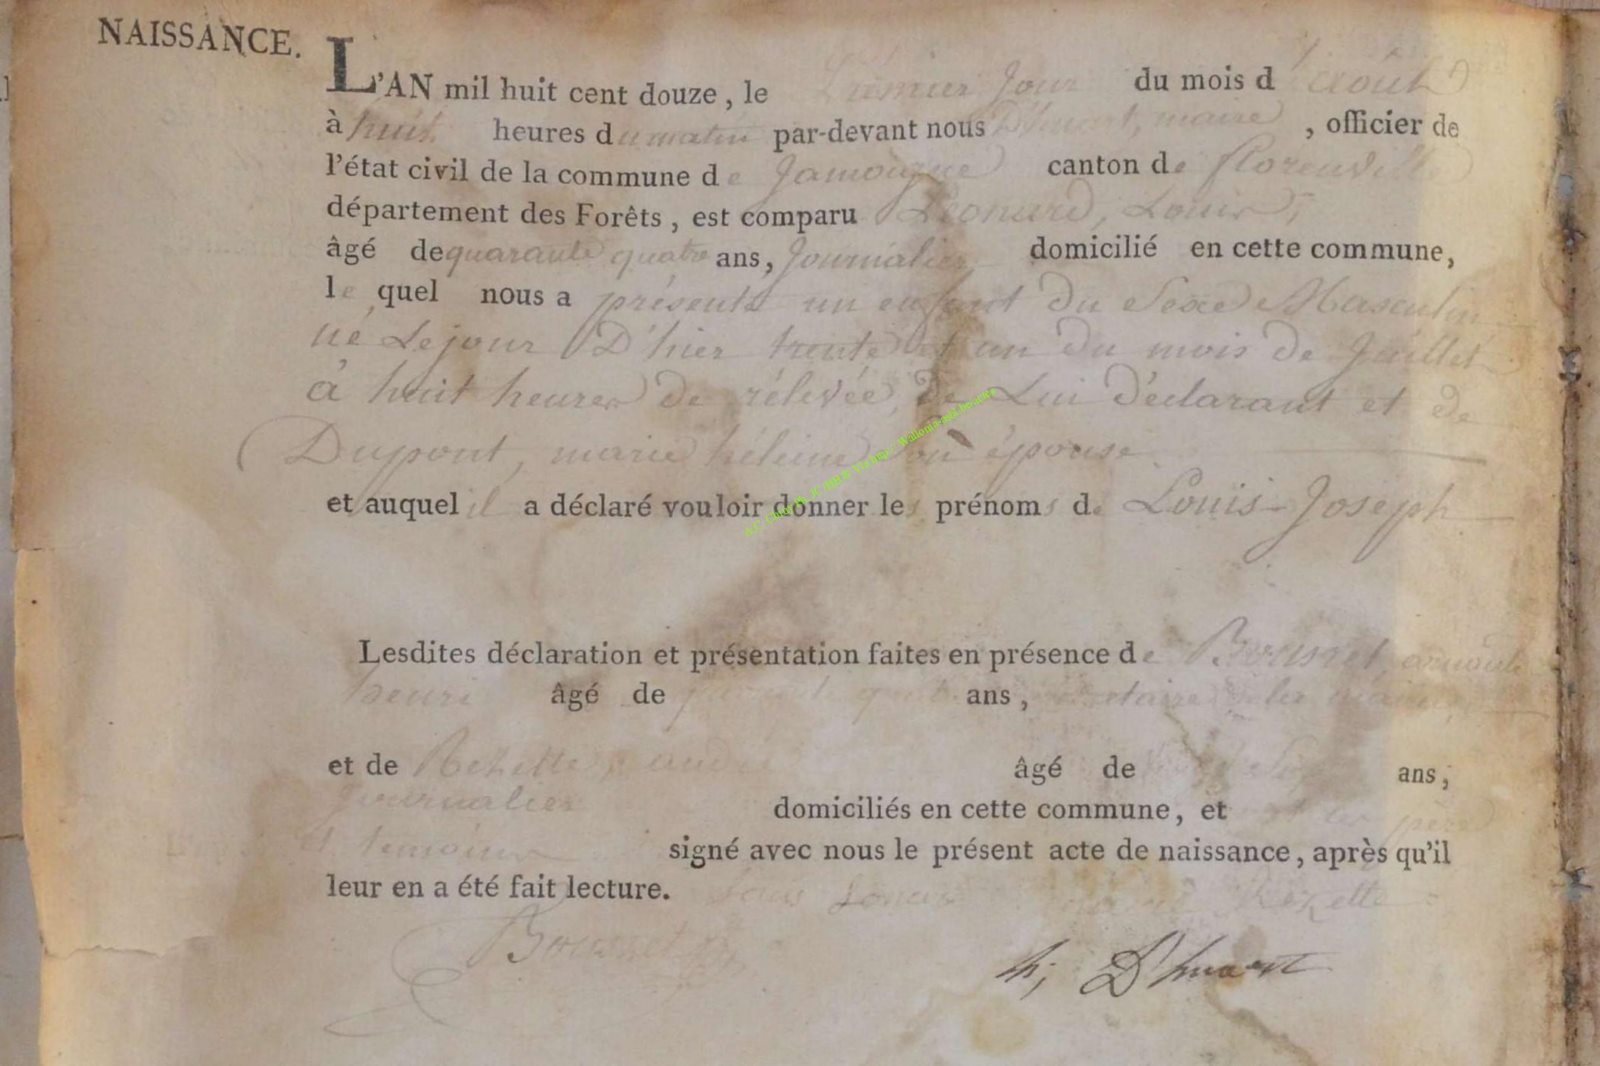 NAISSANCE.
L'AN mil huit cent douze, le Premier Jour du mois d'Août
à huit heures du matin par-devant nous D'huart, maire, officier de
l'état civil de la commune de Jamoigne canton de florenville
département des Forêts, est comparu Léonard, Louis,
âgé de quarante quatre ans, Journalier domicilié en cette commune,
le quel nous a présenté un enfant du Sexe Masculin
né Le jour D'hier trente et un du mois de Juillet
à huit heures de rélevée, de Lui déclarant et de
Dupont, marie héleine son épouse
et auquel il a déclaré vouloir donner les prénoms de Louis-Joseph
Lesdites déclaration et présentation faites en présence de Housset
henri âgé de ans,
et de Rezette, andré âgé de ans,
Journalier domiciliés en cette commune, et les père
et temoins signé avec nous le présent acte de naissance, après qu'il
leur en a été fait lecture.
Rezette
h, D'huart